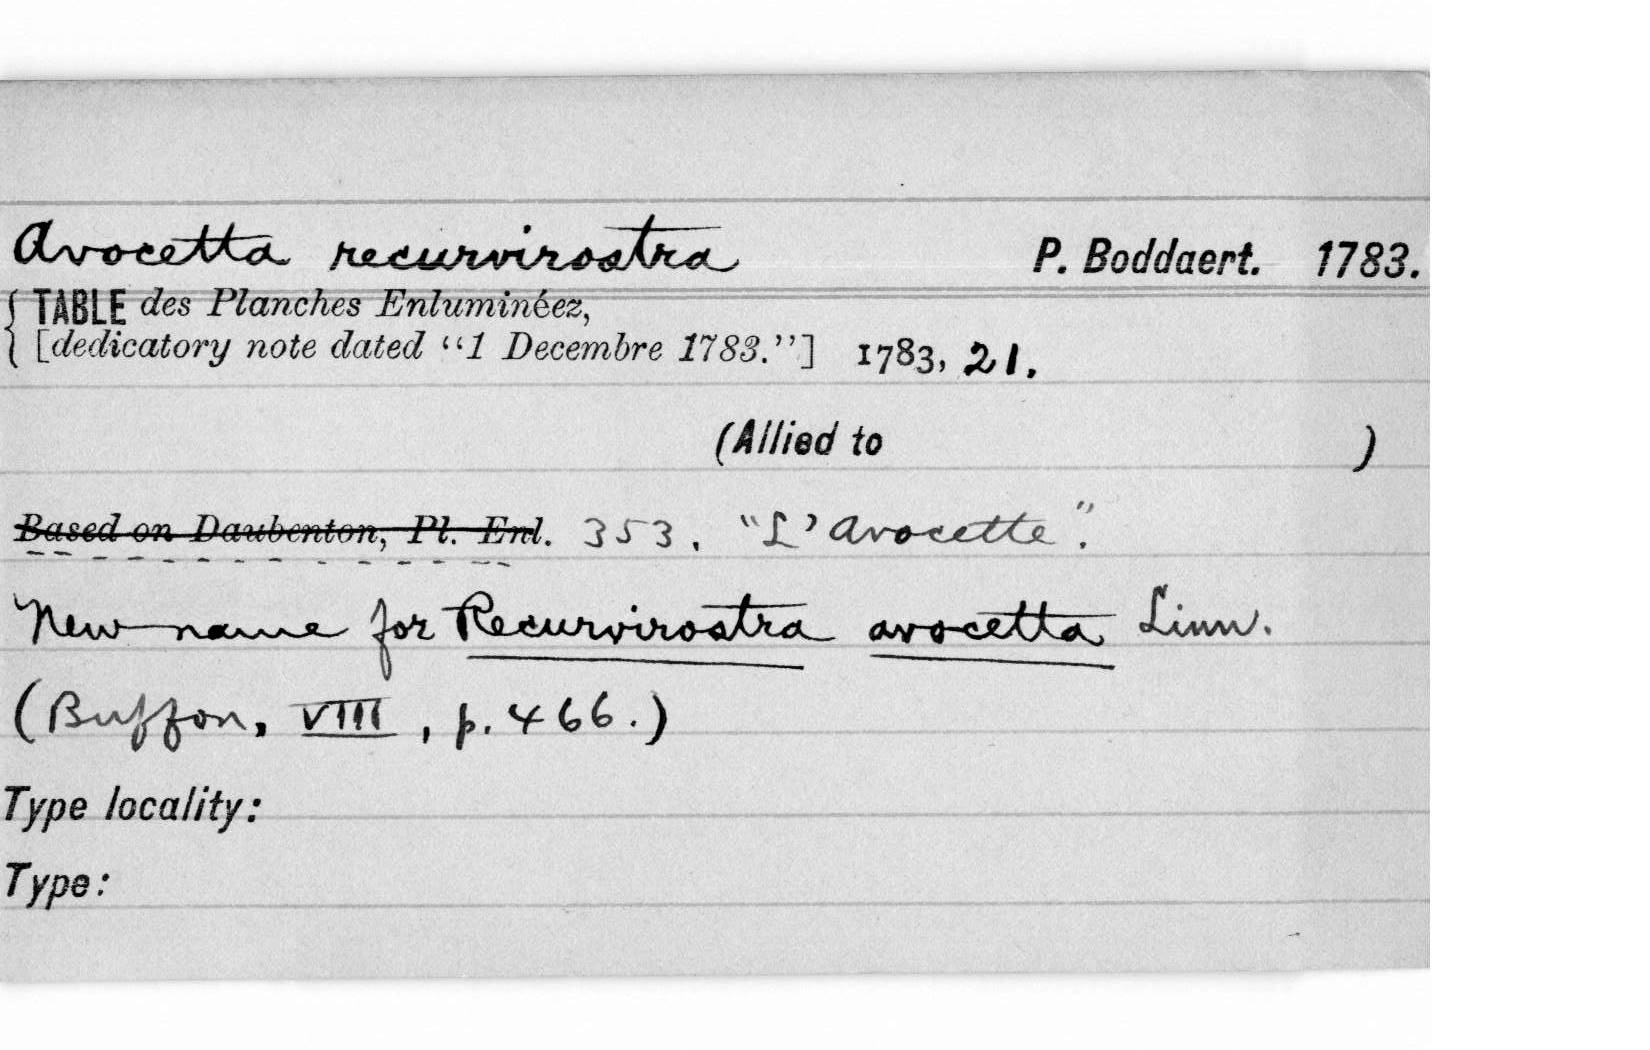 Avocetta recurvirostra P. Boddaert. 1783.
{ TABLE des Planches Enluminéez,
[dedicatory note dated “1 Decembre 1783.”] 1783, 21.
(Allied to )
Based on Daubenton, Pl. Enl. 353. "L'avocette".
New name for Recurvirostra avocetta Linn.
(Buffon, VIII, p. 466.)
Type locality:
Type: